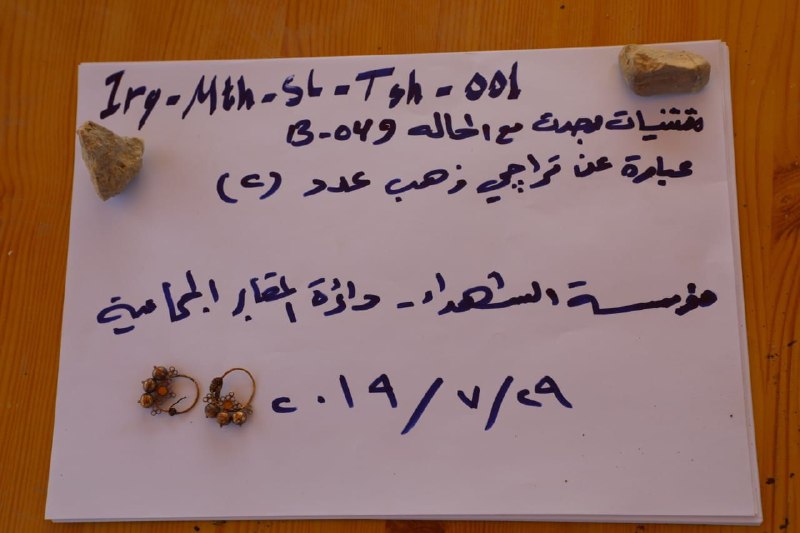 Irq-Mth-SL-Tsh-001
مقتنيات وجدت مع الحاله B-049
عبارة عن تراچي ذهب عدد (٢)
مؤسسة الشهداء - دائرة المقابر الجماعية
٢٠١٩/٧/٢٩